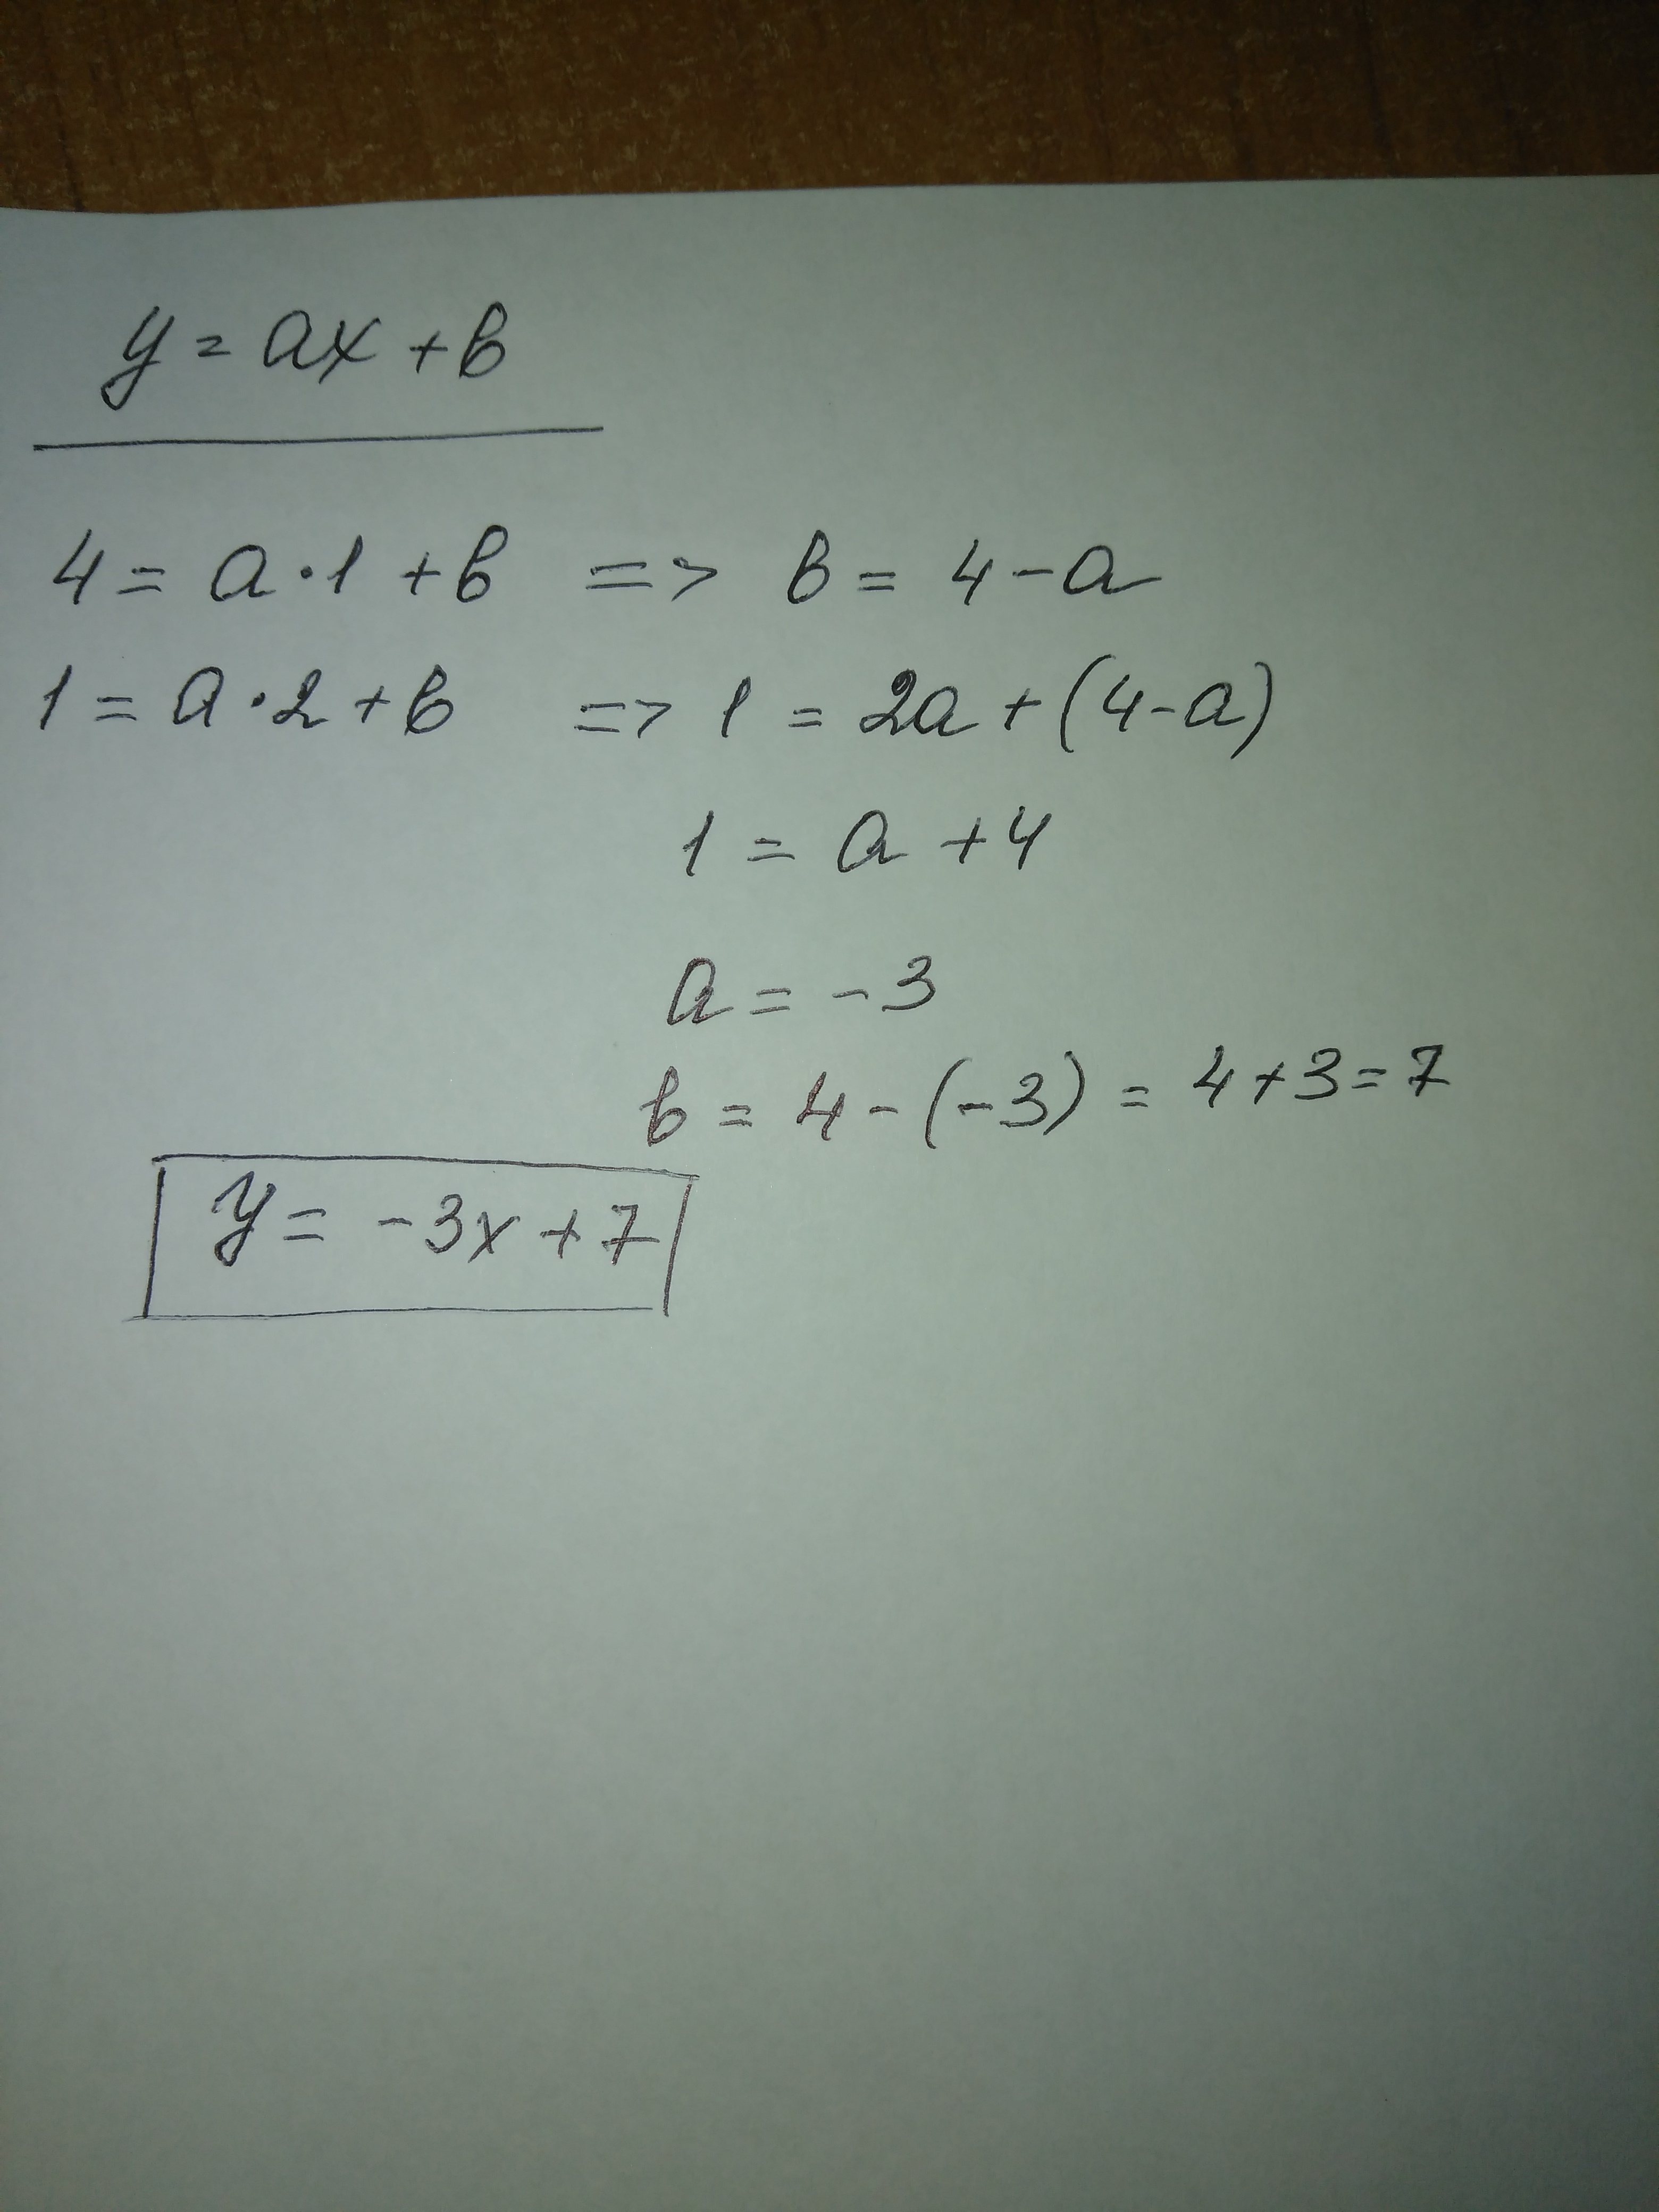 y = ax + b
4 = a·1 + b => b = 4 - a
1 = a·2 + b => 1 = 2a + (4 - a)
1 = a + 4
a = -3
b = 4 - (-3) = 4 + 3 = 7
y = -3x + 7